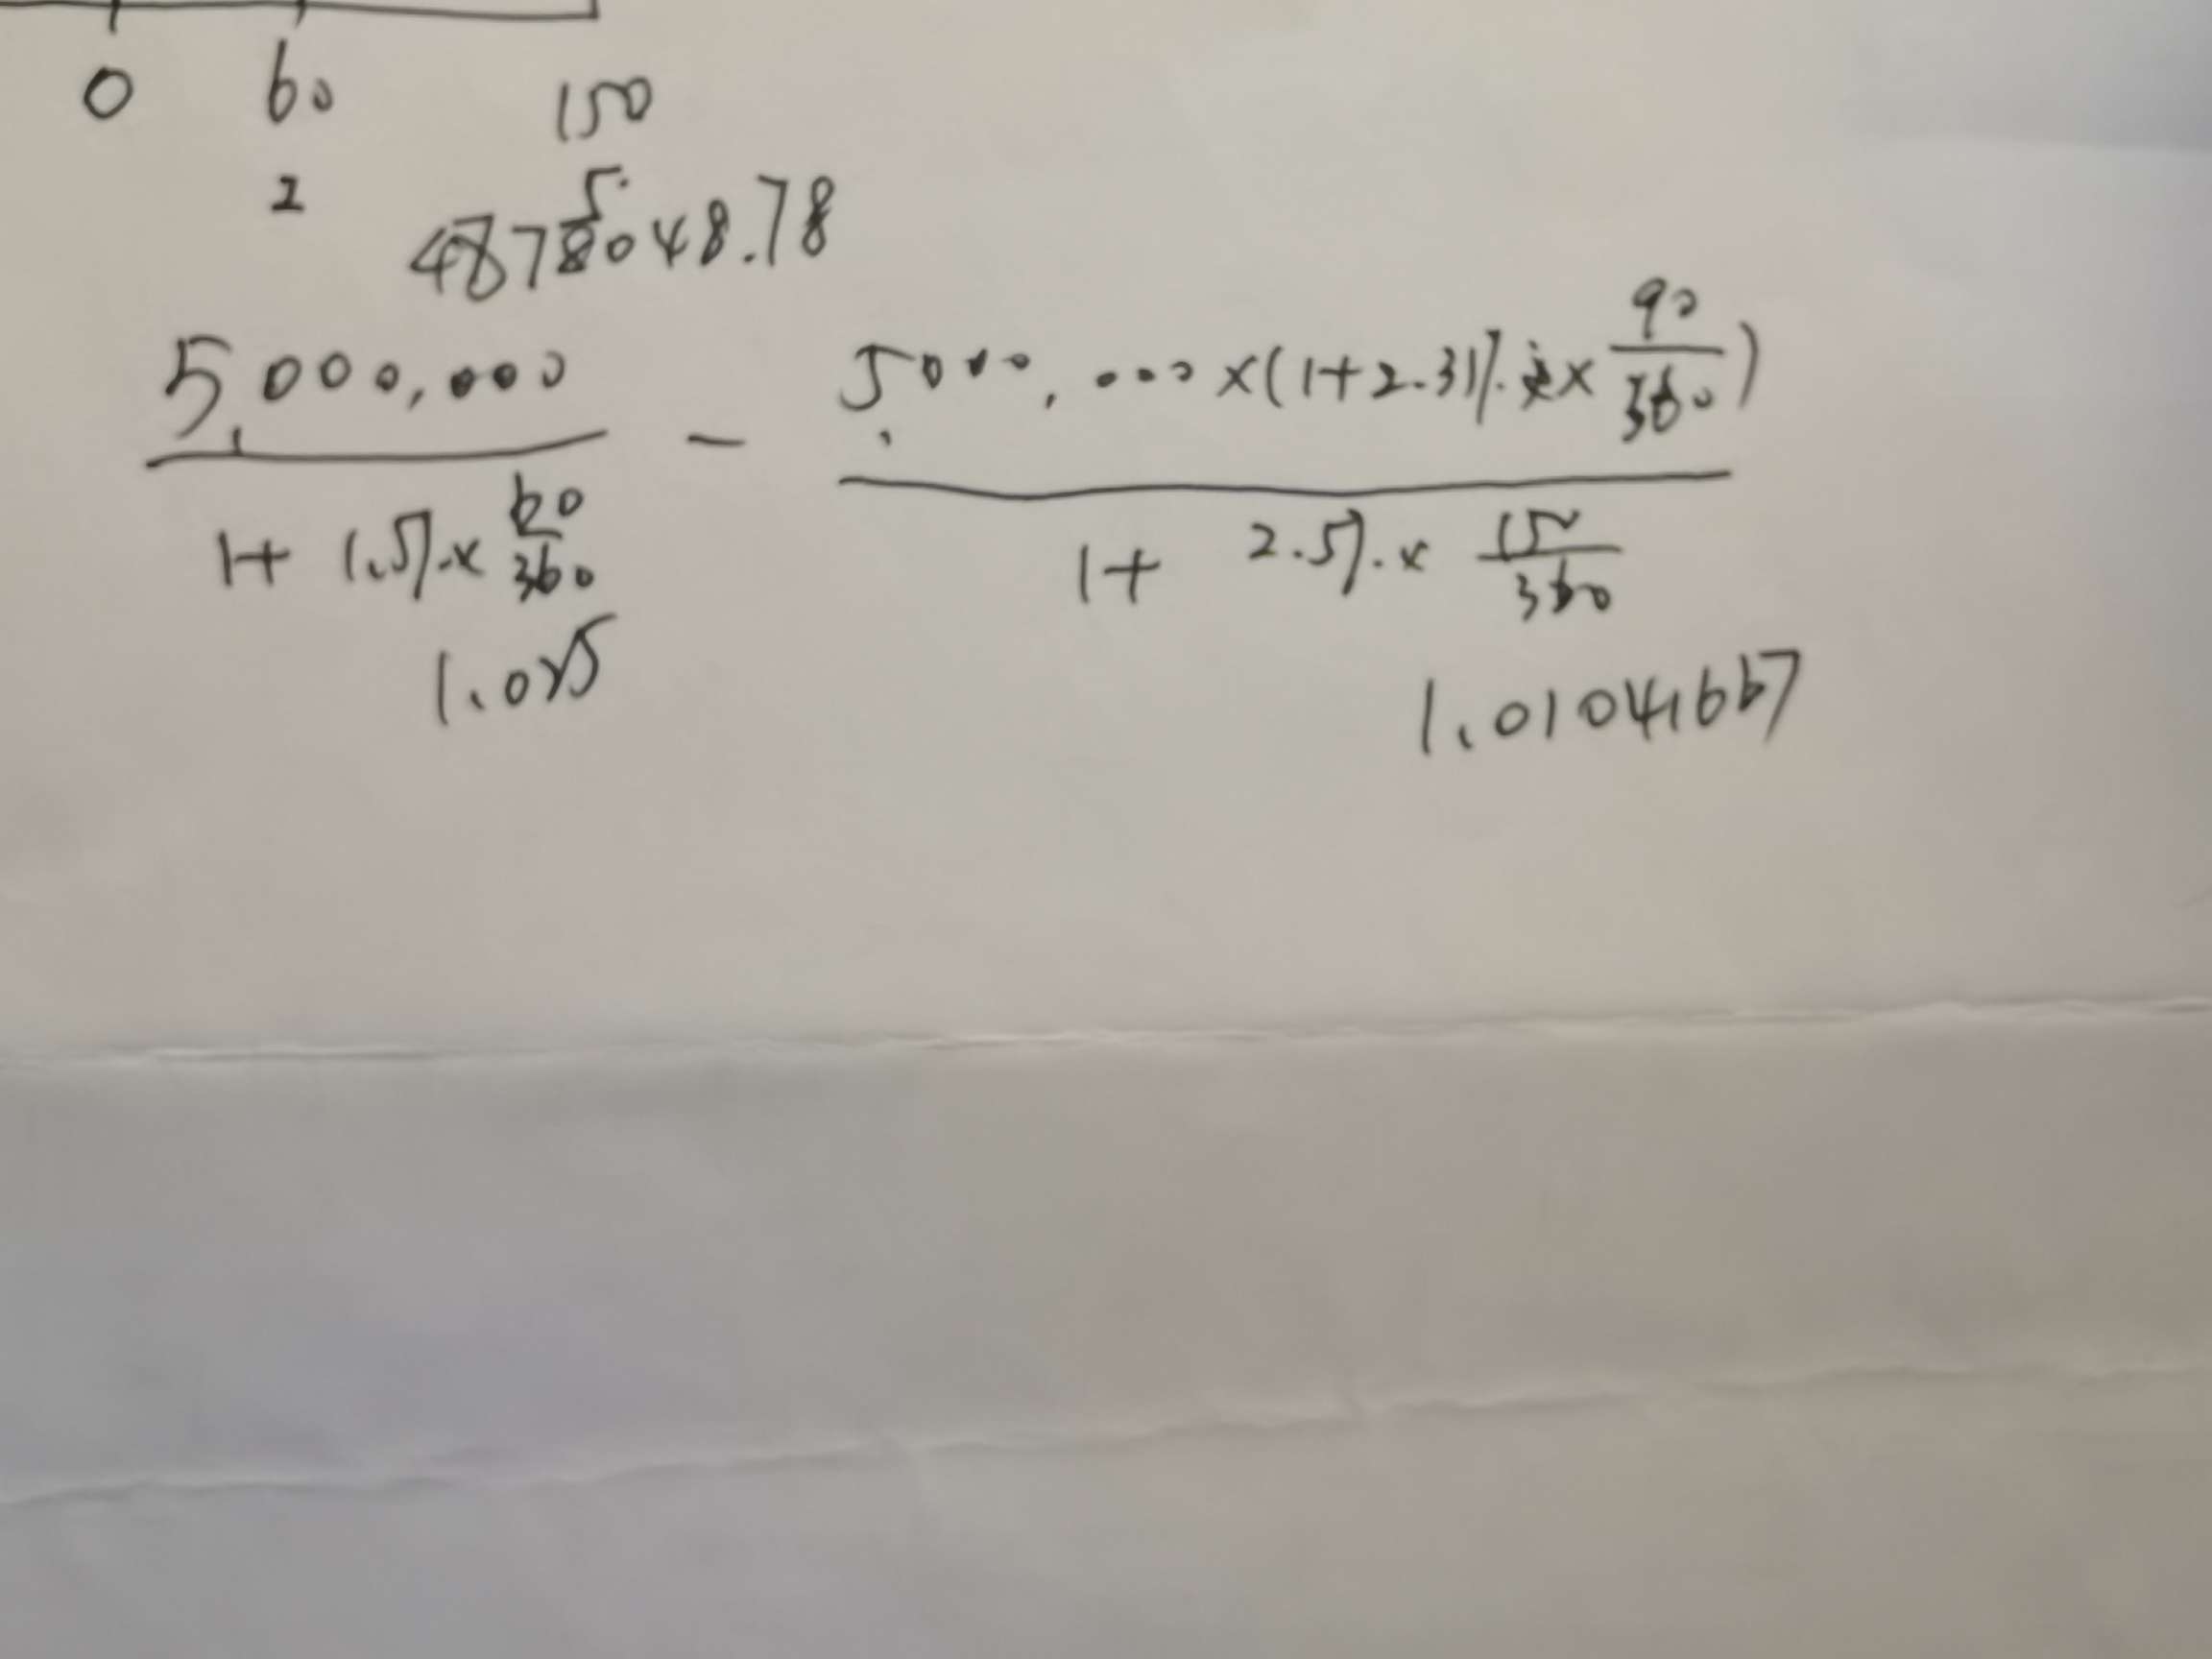 0 60 150
2
4878048.78
5
5,000,000 / 1+ 1.5% × 60/360 - 5,000,000 ×(1+2.31% × 90/360) / 1+ 2.5% × 150/360
1.025
1.0104167